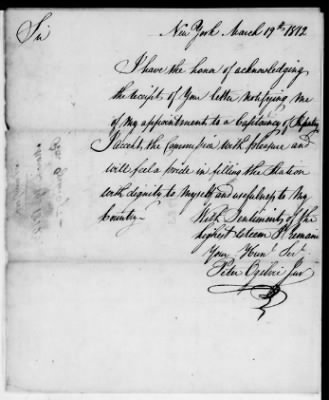 New York March 19th 1812
Sir
I have the honor of acknowledging
the receipt of Your letter notifying me
of my appointment to a Captaincy of Infantry
I accept the Commission with pleasure and
will feel a pride in filling the Station
with dignity to Myself and usefulness to My
Country—
With Sentiments of the
highest Esteem I remain
Your Humb. Sert.
Peter Ogilvie Junr